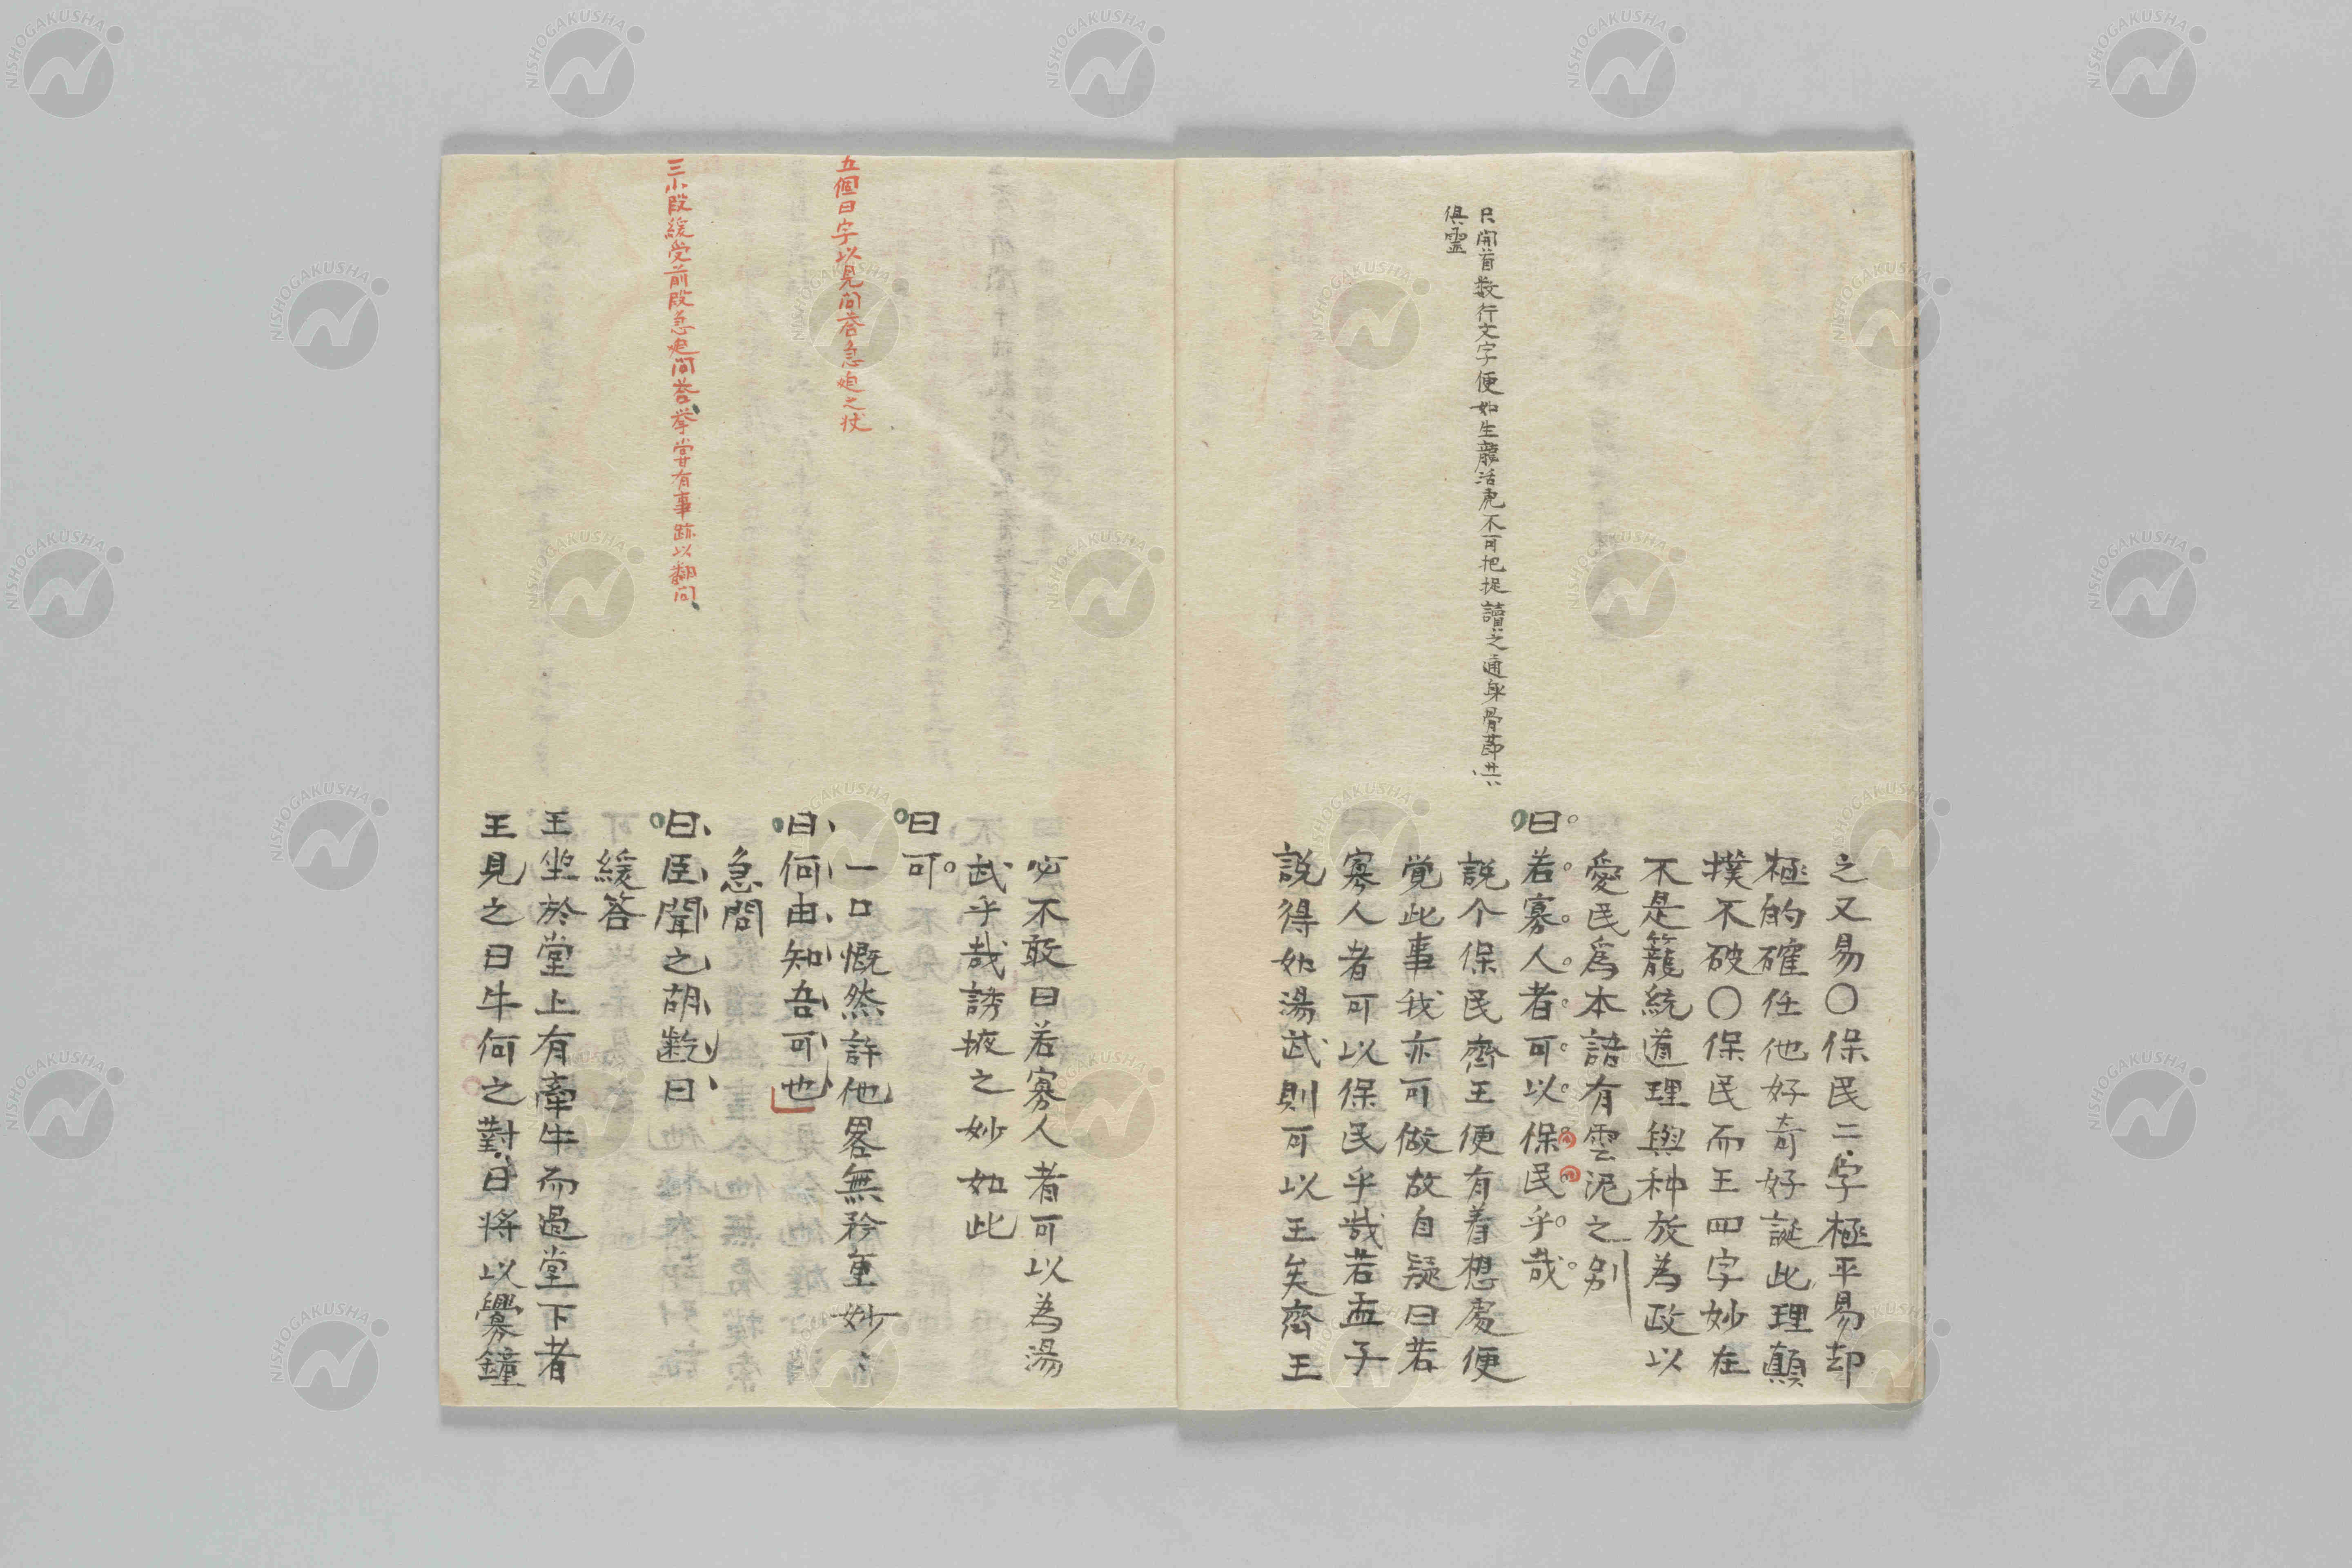 只開首数行文字便如生龍活虎不可把捉讀之通身骨節共
俱霊
之又易〇保民二字極平易却
極的確任他好奇好誕此理顛
撲不破〇保民而王四字妙在
不是籠統道理與种放為政以
愛民爲本語有雲泥之別
曰若寡人者可以保民乎哉
説个保民齊王便有着想處便
覚此事我亦可做故自疑曰若
寡人者可以保民乎哉若孟子
説得如湯武則可以王矣齊王
五個曰字以見問荅急之状
三小段緩受前段急問荅挙當有事跡以翻問
必不敢曰若寡人者可以為湯
武乎哉誘掖之妙如此
曰可
一口慨然許他畧無矜重妙
曰何由知吾可也
急問
曰臣聞之胡齕曰
緩答
王坐於堂上有牽牛而過堂下者
王見之曰牛何之對曰將以釁鐘
NISHOGAKUSHA